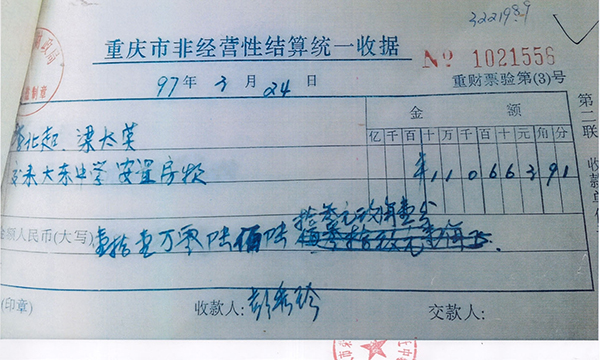 3221989
重庆市非经营性结算统一收据
№ 1021556
97年3月24日
重财票验第(3)号
金额
亿千百十万千百十元角分
北起、梁大英
大东中学安置房款
¥11066391
第二联
收款单
人民币(大写)壹拾壹万零陆佰陆
拾叁元玖角壹分
(印章)
收款人:
交款人: